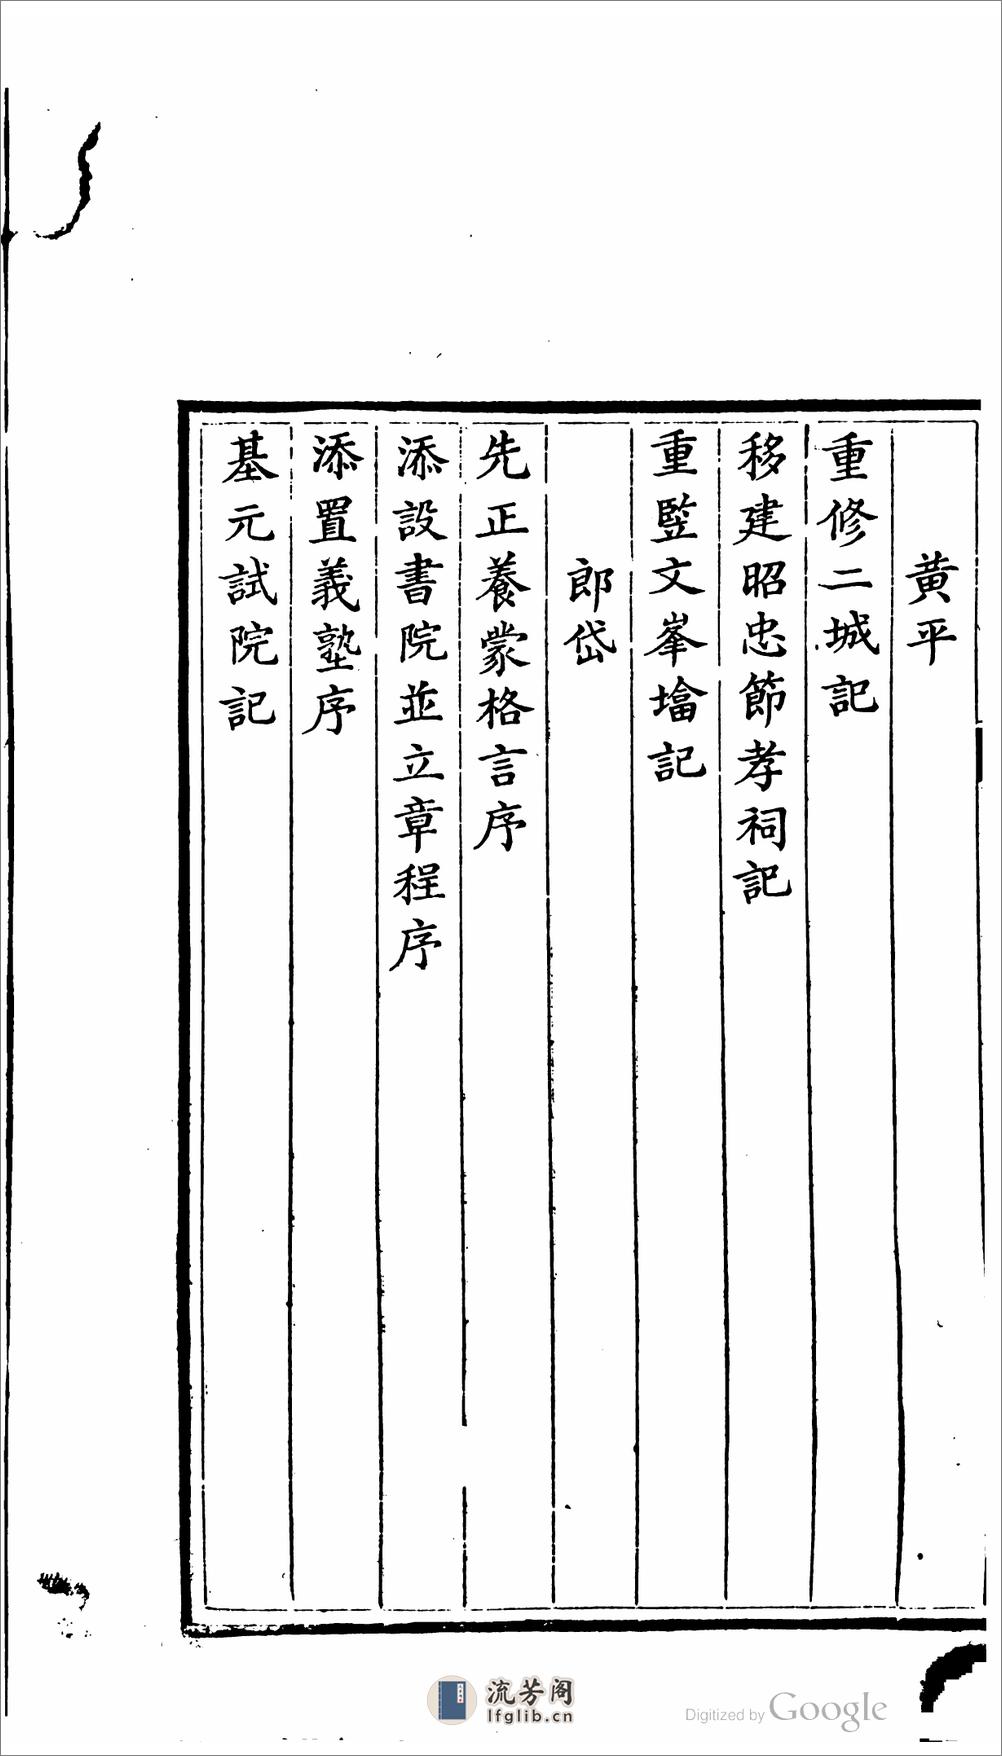 黄平
重修二城記
移建昭忠節孝祠記
重竪文峯墖記
郎岱
先正養蒙格言序
添設書院並立章程序
添置義塾序
基元試院記
流芳阁
lfglib.cn
Digitized by Google